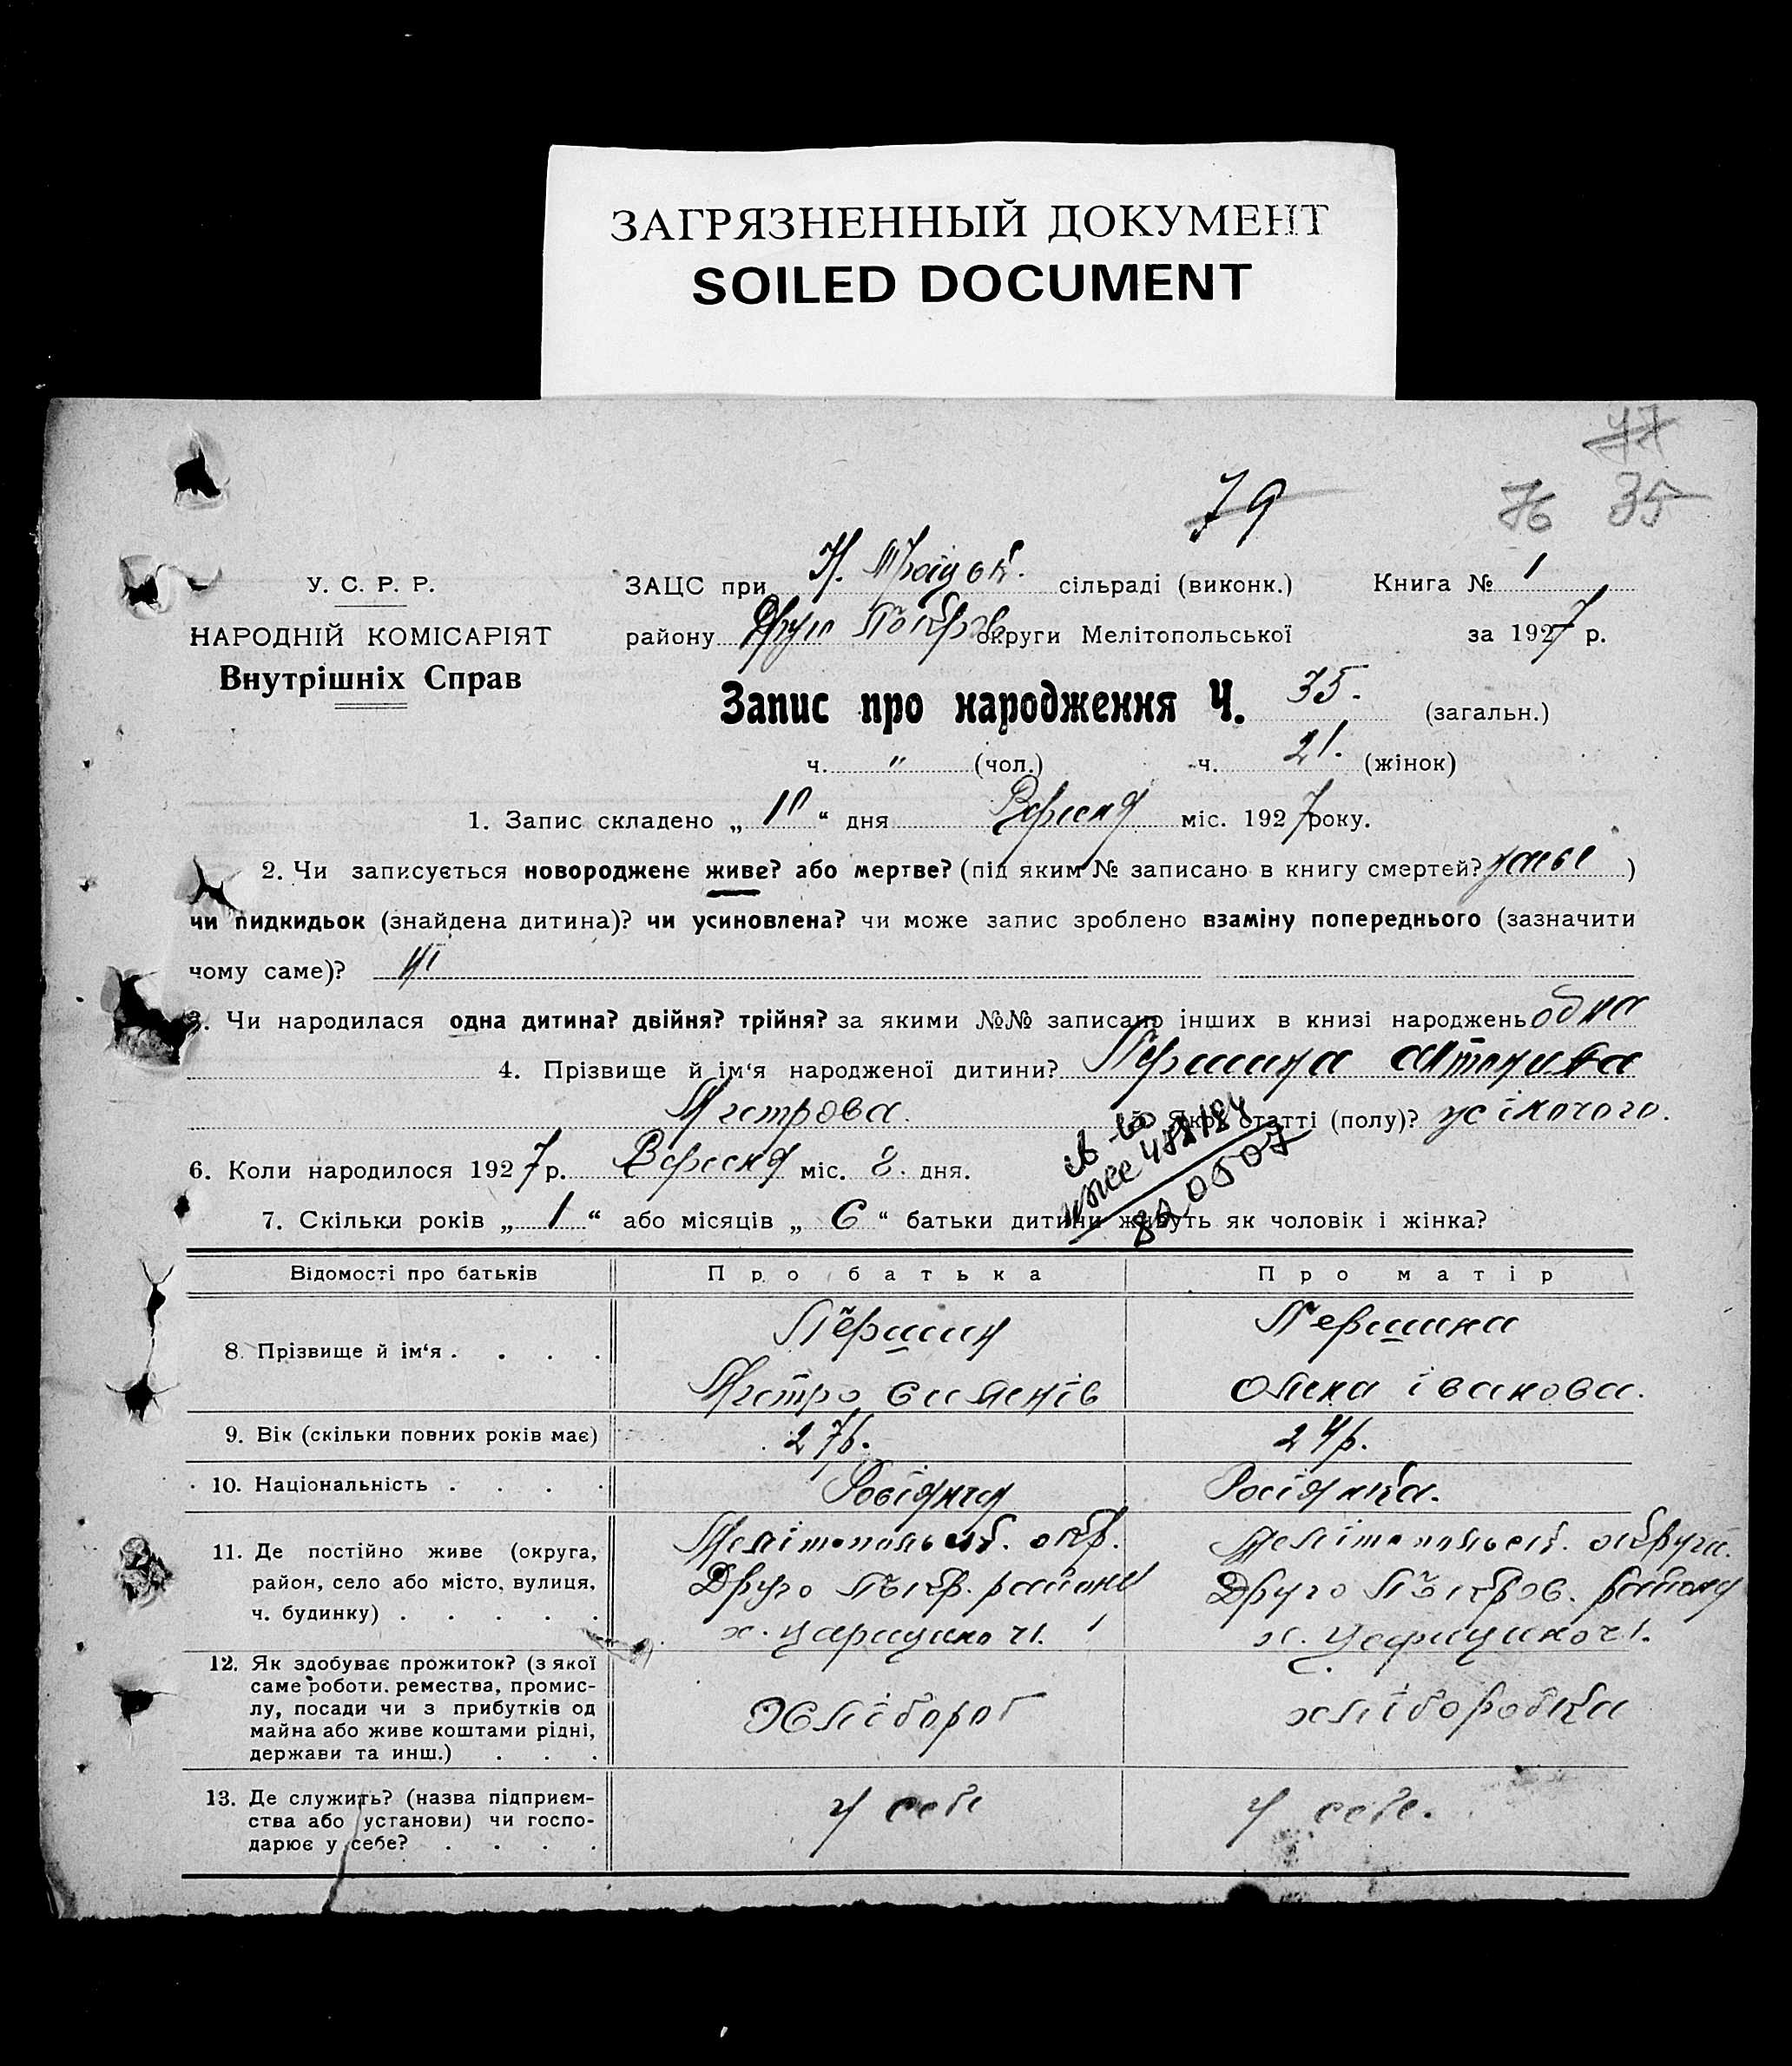 ЗАГРЯЗНЕННЫЙ ДОКУМЕНТ
SOILED DOCUMENT
77
79 76 35
У. С. Р. Р.
НАРОДНІЙ КОМІСАРІЯТ
Внутрішніх Справ
ЗАЦС при Н. Троіцьк. сільраді (виконк.) Книга № 1
району Друго Покров округи Мелітопольської за 1927 р.
Запис про народження Ч. 35. (загальн.)
ч. " (чол.) ч. 21. (жінок)
1. Запис складено „ 10 “ дня Вересня міс. 1927 року.
2. Чи записується новороджене живе? або мертве? (під яким № записано в книгу смертей? живе )
чи підкидьок (знайдена дитина)? чи усиновлена? чи може запис зроблено взаміну попереднього (зазначити
чому саме)? ні
3. Чи народилася одна дитина? двійня? трійня? за якими №№ записано інших в книзі народжень одна
4. Прізвище й ім‘я народженої дитини? Першина Антонина
Петрова. 5. Якої статті (полу)? жіночого.
6. Коли народилося 1927 р. Вересня міс. 8. дня.
7. Скільки років „ 1 “ або місяців „ 6 “ батьки дитини живуть як чоловік і жінка?
Відомості про батьків Про батька Про матір
8. Прізвище й ім‘я . . . . Першин Першина
Петро Семенів Олена іванова.
9. Вік (скільки повних років має) 27р. 24р.
10. Національність . . . . Росіянин Росіянка.
11. Де постійно живе (округа, Мелітопольськ. окр. Мелітопольськ. округи.
район, село або місто, вулиця, Друго Покр. району Друго Покров. району
ч. будинку) . . . . . х. Царицино ч1. х. Царицино ч1.
12. Як здобуває прожиток? (з якої
саме роботи. ремества, промис-
лу, посади чи з прибутків од Хлібороб хліборобка
майна або живе коштами рідні,
держави та инш.) . . .
13. Де служить? (назва підприєм-
ства або установи) чи госпо- у себе у себе.
дарює у себе? . . . .